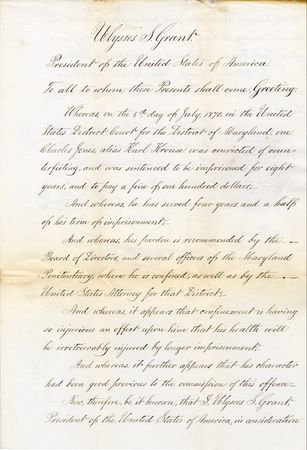 Ulysses S. Grant
President of the United States of America
To all to whom these Presents shall come, Greeting:
Whereas on the 5th day of July, 1870, in the United
States District Court for the District of Maryland, one
Charles Jones, alias Karl Krouse was convicted of coun-
terfeiting, and was sentenced to be imprisoned for eight
years, and to pay a fine of one hundred dollars;—
And whereas, he has served four years and a half
of his term of imprisonment;—
And whereas, his pardon is recommended by the
Board of Directors and several officers of the Maryland
Penitentiary, where he is confined, as well as by the
United States Attorney for that District;—
And whereas it appears that confinement is having
so injurious an effect upon him that his health will
be irretrievably injured by longer imprisonment;
And whereas it further appears that his character
had been good previous to the commission of this offence:—
Now, therefore, be it known, that I, Ulysses S. Grant
President of the United States of America, in consideration